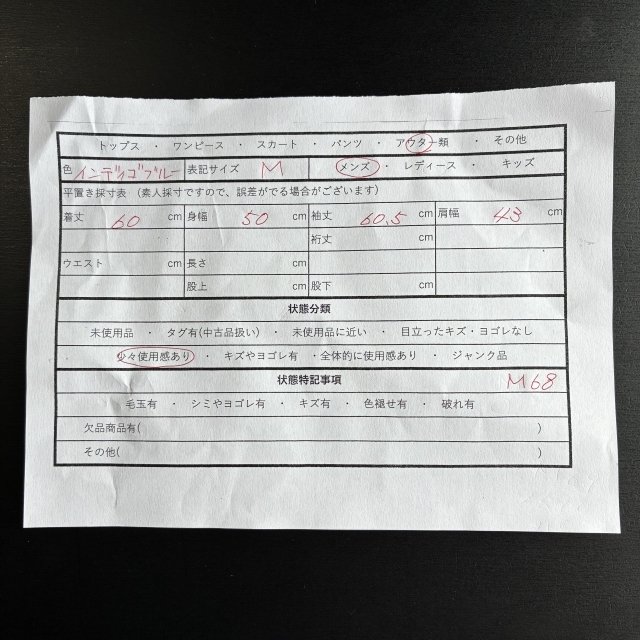 トップス ・ ワンピース ・ スカート ・ パンツ ・ アウター類 ・ その他
色 インディゴブルー 表記サイズ M メンズ ・ レディース ・ キッズ
平置き採寸表 (素人採寸ですので、誤差がでる場合がございます)
着丈 60 cm 身幅 50 cm 袖丈 60.5 cm 肩幅 43 cm
裄丈 cm
ウエスト cm 長さ cm
股上 cm 股下 cm
状態分類
未使用品 ・ タグ有(中古品扱い) ・ 未使用品に近い ・ 目立ったキズ・ヨゴレなし
少々使用感あり ・ キズやヨゴレ有 ・全体的に使用感あり ・ ジャンク品
状態特記事項 M68
毛玉有 ・ シミやヨゴレ有 ・ キズ有 ・ 色褪せ有 ・ 破れ有
欠品商品有( )
その他( )